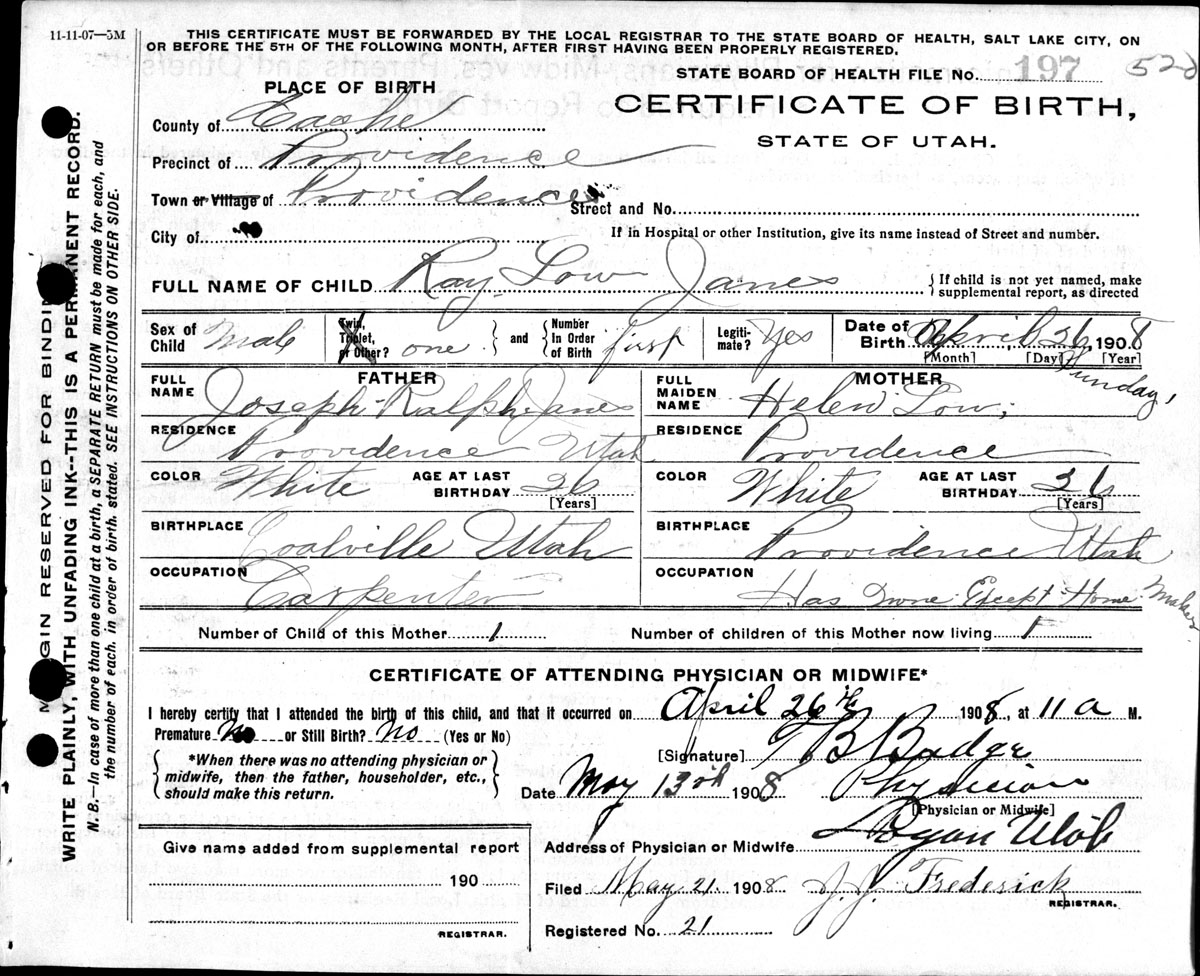 11-11-07—5M
THIS CERTIFICATE MUST BE FORWARDED BY THE LOCAL REGISTRAR TO THE STATE BOARD OF HEALTH, SALT LAKE CITY, ON
OR BEFORE THE 5TH OF THE FOLLOWING MONTH, AFTER FIRST HAVING BEEN PROPERLY REGISTERED.
STATE BOARD OF HEALTH FILE No. 197
PLACE OF BIRTH
CERTIFICATE OF BIRTH,
STATE OF UTAH.
County of Cashe
Precinct of Providence
Town or Village of Providence
Street and No.
City of
If in Hospital or other Institution, give its name instead of Street and number.
FULL NAME OF CHILD Ray Low Janes
If child is not yet named, make
supplemental report, as directed
Sex of Child Male
Twin, Triplet, or Other? one
and Number In Order of Birth first
Legitimate? Yes
Date of Birth April 26 1908
[Month] [Day] [Year]
Sunday,
FATHER
FULL NAME Joseph Ralph Janes
RESIDENCE Providence Utah
COLOR White AGE AT LAST BIRTHDAY 26
[Years]
BIRTHPLACE Coalville Utah
OCCUPATION Carpenter
MOTHER
FULL MAIDEN NAME Helen Low;
RESIDENCE Providence
COLOR White AGE AT LAST BIRTHDAY 26
[Years]
BIRTHPLACE Providence Utah
OCCUPATION Has None Except Home Maker
Number of Child of this Mother 1
Number of children of this Mother now living 1
CERTIFICATE OF ATTENDING PHYSICIAN OR MIDWIFE*
I hereby certify that I attended the birth of this child, and that it occurred on April 26th 1908, at 11 a M.
Premature No or Still Birth? No (Yes or No)
[Signature] T B Badge
*When there was no attending physician or
midwife, then the father, householder, etc.,
should make this return.
Date May 13th 1908 Physician
[Physician or Midwife]
Address of Physician or Midwife Logan Utah
Give name added from supplemental report
190
REGISTRAR.
Filed May 21 1908 J. J. Frederick
REGISTRAR.
Registered No. 21
MARGIN RESERVED FOR BINDING
WRITE PLAINLY, WITH UNFADING INK--THIS IS A PERMANENT RECORD.
N. B.—In case of more than one child at a birth, a SEPARATE RETURN must be made for each, and
the number of each, in order of birth, stated. SEE INSTRUCTIONS ON OTHER SIDE.